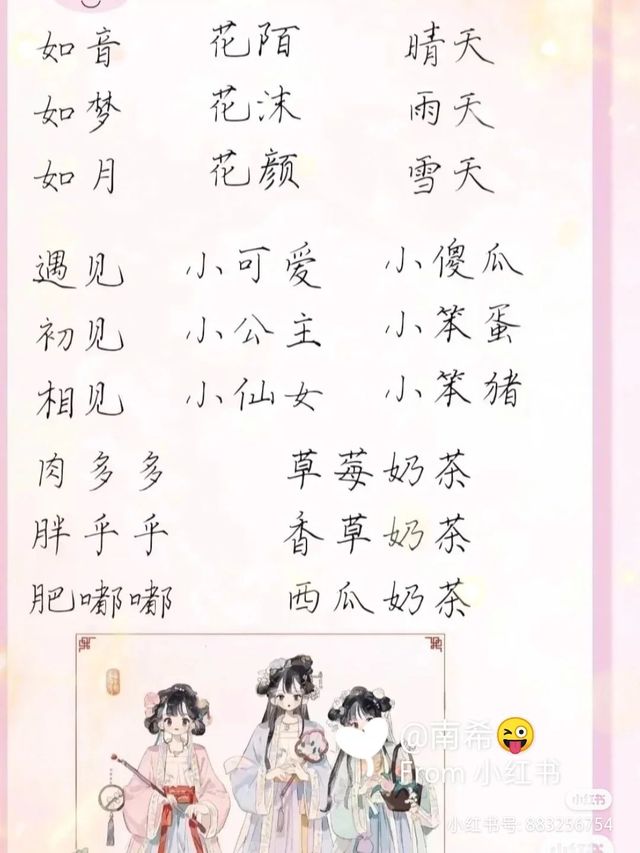 如音 花陌 晴天
如梦 花沫 雨天
如月 花颜 雪天
遇见 小可爱 小傻瓜
初见 小公主 小笨蛋
相见 小仙女 小笨猪
肉多多 草莓奶茶
胖乎乎 香草奶茶
肥嘟嘟 西瓜奶茶
@南希😜
From 小红书
小红书
小红书号: 883256754